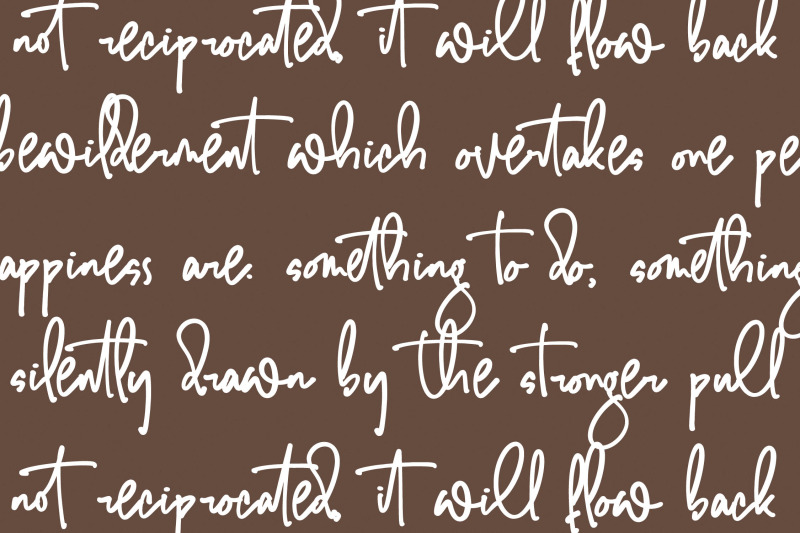 not reciprocated, it will flow back
bewilderment which overtakes one pe
appiness are: something to do, something
silently drawn by the stronger pull
not reciprocated, it will flow back